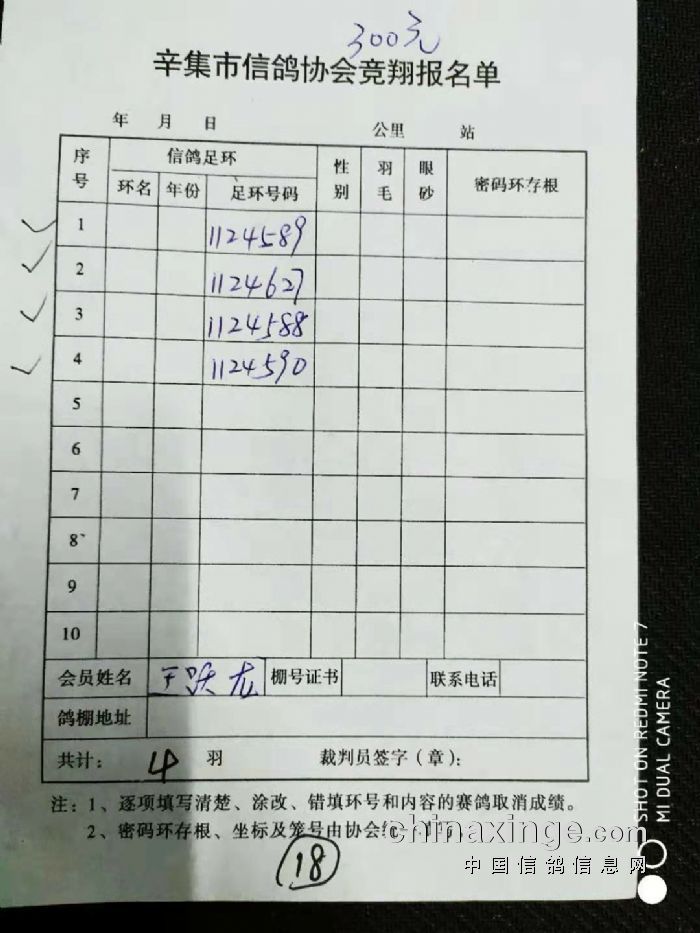 300元
辛集市信鸽协会竞翔报名单
年 月 日 公里 站
序号 信鸽足环 性别 羽毛 眼砂 密码环存根
环名 年份 足环号码
1 1124589
2 1124627
3 1124588
4 1124590
5
6
7
8
9
10
会员姓名 王跃龙 棚号证书 联系电话
鸽棚地址
共计: 4 羽 裁判员签字(章):
注:1、逐项填写清楚、涂改、错填环号和内容的赛鸽取消成绩。
2、密码环存根、坐标及笼号由协会
chinaxinge.com
中国信鸽信息网
18
SHOT ON REDMI NOTE 7
MI DUAL CAMERA